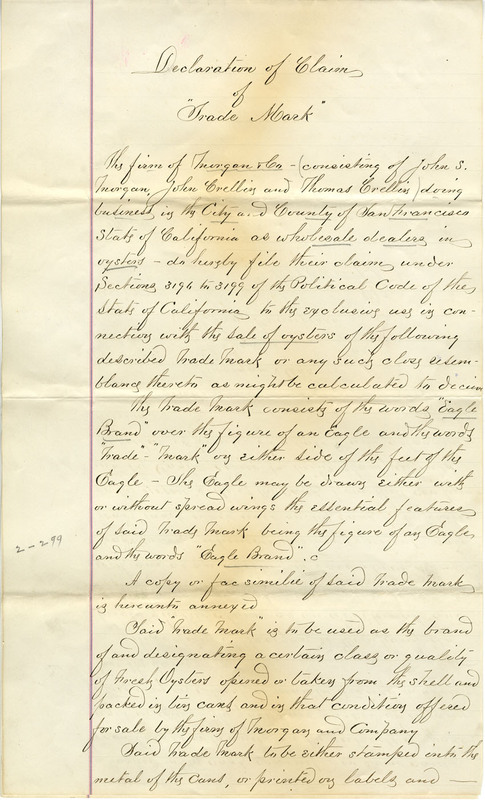 Declaration of Claim
of
"Trade Mark"
The firm of Morgan & Co - (consisting of John S.
Morgan, John Crellin and Thomas Crellin) doing
business in the City and County of San Francisco
State of California as wholesale dealers in
oysters - do hereby file their claim under
Sections 3194 to 3199 of the Political Code of the
State of California to the exclusive use in con-
nection with the sale of oysters of the following
described Trade Mark or any such close resem-
blance thereto as might be calculated to deceive
The Trade Mark consists of the words "Eagle
Brand" over the figure of an Eagle and the words
"Trade" - "Mark" on either side of the feet of the
Eagle - The Eagle may be drawn either with
or without spread wings the essential features
of said Trade Mark being the figure of an Eagle
2-299
and the words "Eagle Brand".
A copy or fac similie of said Trade Mark
is hereunto annexed
Said "Trade Mark" is to be used as the brand
of and designating a certain class or quality
of Fresh Oysters opened or taken from the shell and
packed in tin cans and in that condition offered
for sale by the firm of Morgan and Company
Said Trade Mark to be either stamped into the
metal of the cans, or printed on labels and —